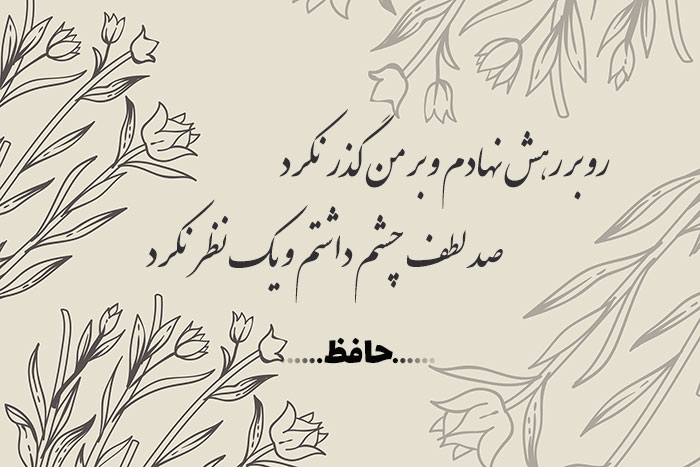 رو بر رهش نهادم و بر من گذر نکرد
صد لطف چشم داشتم و یک نظر نکرد
......حافظ......